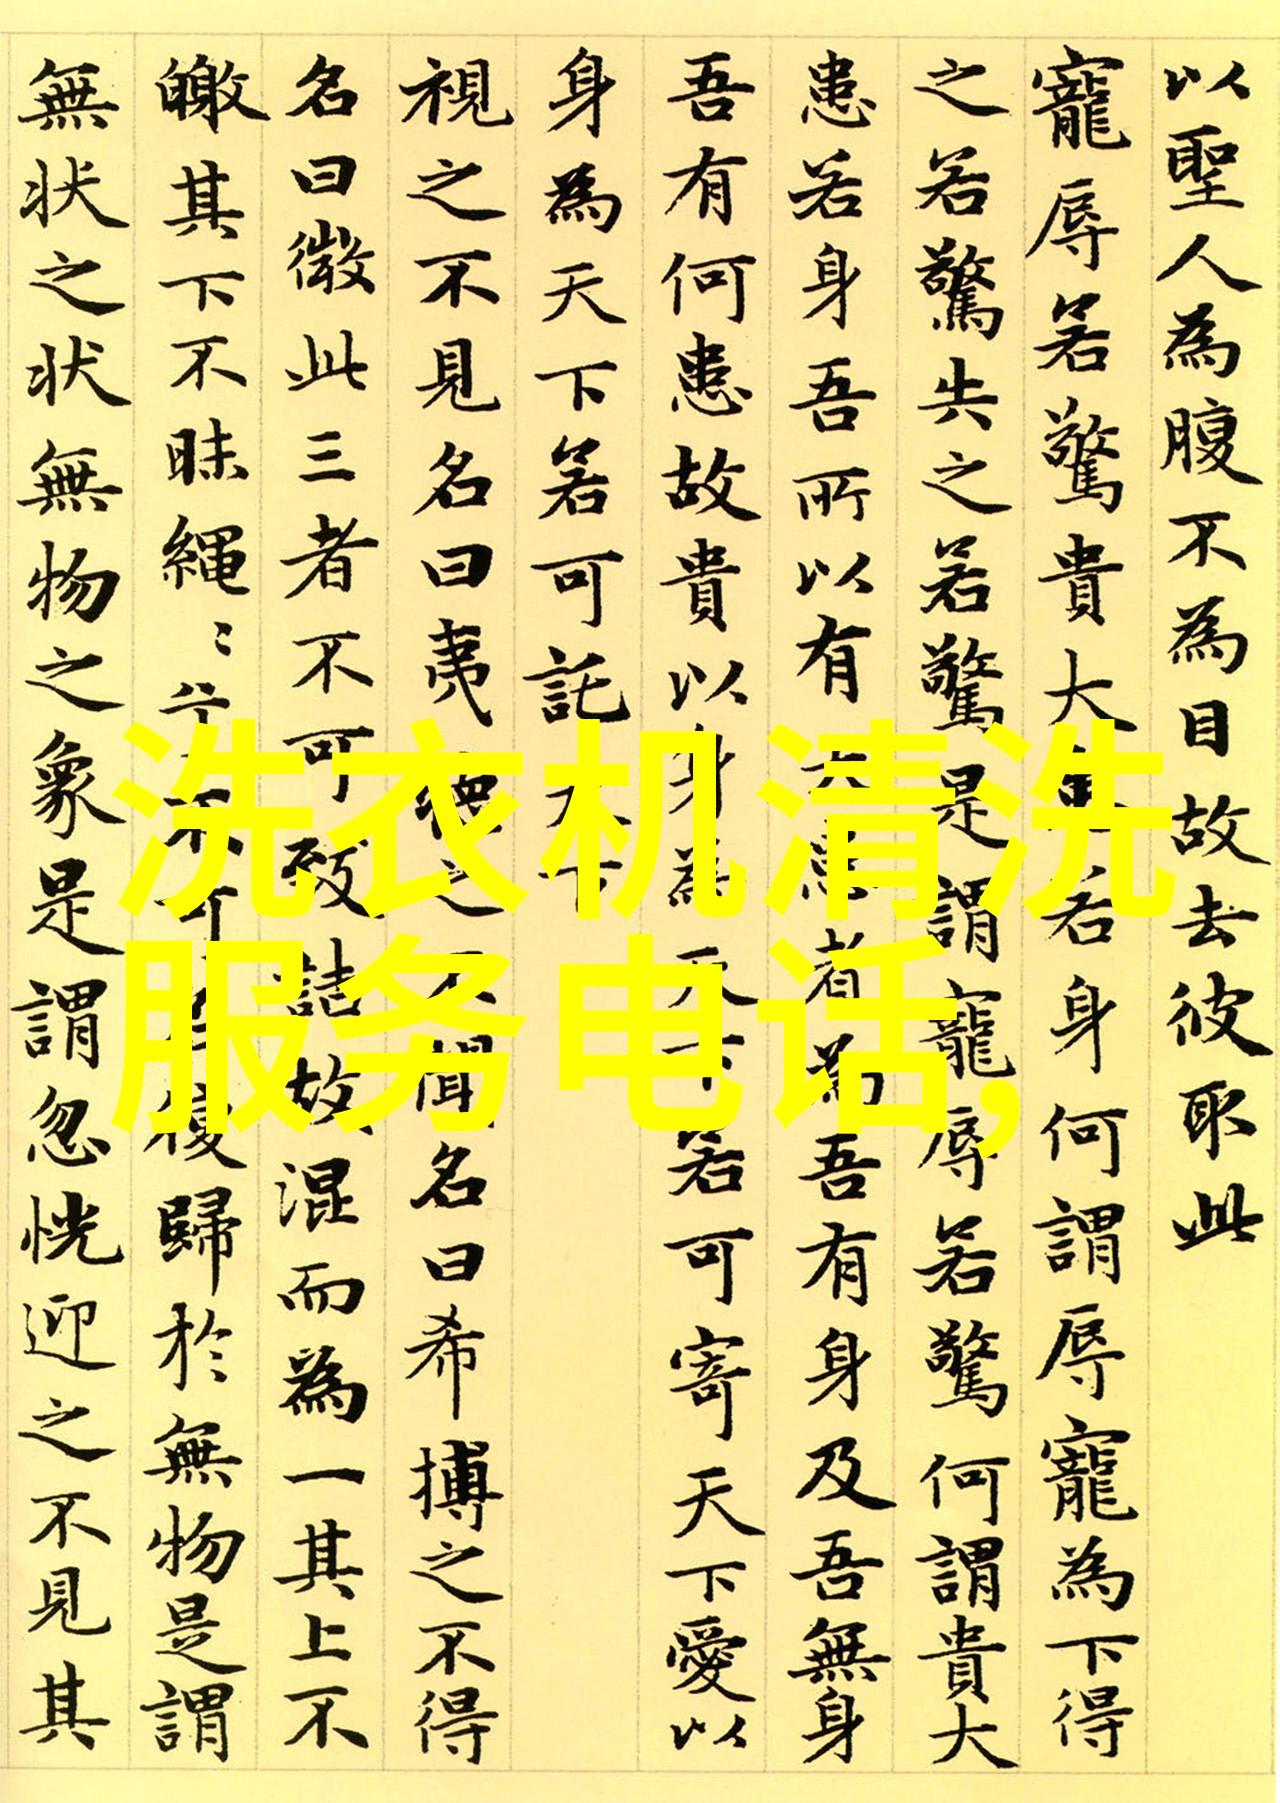 以聖人為腹不為目故去彼取此
寵辱若驚貴大患若身何謂辱寵為下得
之若驚失之若驚是謂寵辱若驚何謂貴大
患若身吾所以有大患者為吾有身及吾無身
吾有何患故貴以身為天下若可寄天下愛以
身為天下若可託天下
視之不見名曰夷聽之不聞名曰希搏之不得
名曰微此三者不可致詰故混而為一其上不
皦其下不昧繩〻兮不可復歸於無物是謂
無状之状無物之象是謂忽恍迎之不見其
洗衣机清洗
服务电话,